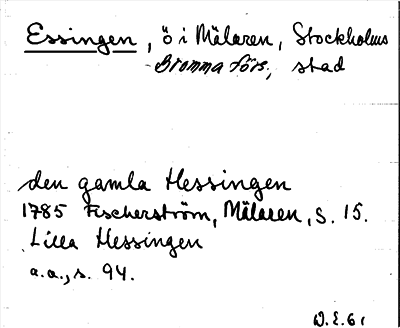 Essingen, ö i Mälaren, Stockholms
Bromma förs., stad
den gamla Hessingen
1785 Fischerström, Mälaren, S. 15.
Lilla Hessingen
a.a., s. 94.
D.E.61